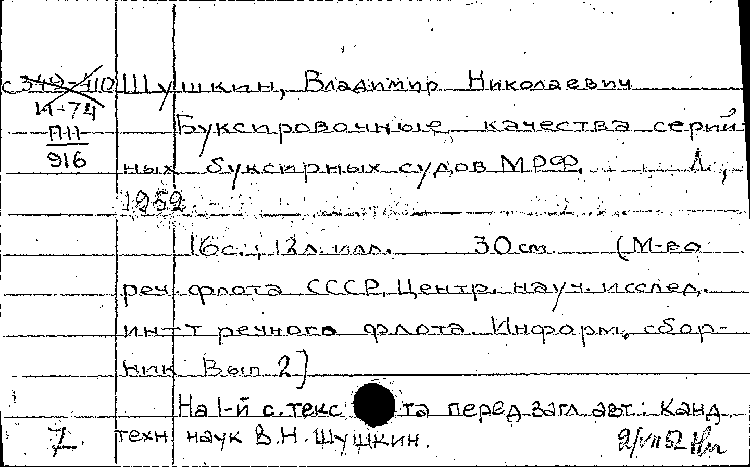 с 342-410 Шушкин, Владимир Николаевич
И-74
П-11
916
Буксировочные качества серий-
ных буксирных судов МРФ. Л.,
1952.
16 с.; 12 л. илл. 30 см (М-во
реч. флота СССР. Центр. науч. исслед.
ин-т речного флота. Информ. сбор-
ник Вып 2]
На 1-й с. текста перед загл. авт.: Канд.
техн наук В.Н. Шушкин.
7